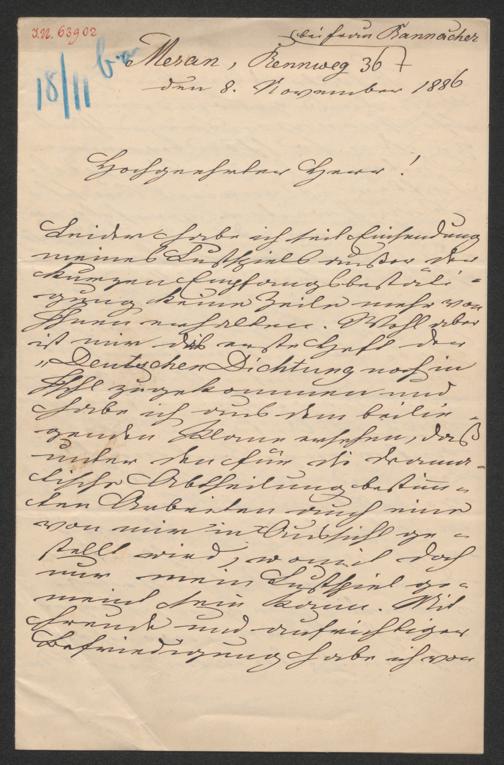 J.N. 63902
bei Frau Kannacher
Meran, Rennweg 36
18/11
den 8. November 1886
Hochgeehrter Herr!
Leider habe ich seit Einsendung
meines Lustspiels außer der
kurzen Empfangsbestäti-
gung keine Zeile mehr von
Ihnen erhalten. Wohl aber
ist mir das erste Heft der
„Deutschen Dichtung noch in
zugekommen und
habe ich aus dem beilie-
genden Plane ersehen, daß
unter den für die drama-
tische Abtheilung bestimm-
ten Arbeiten auch eine
von mir in Aussicht ge-
stellt wird, womit doch
nur mein Lustspiel ge-
meint sein kann. Mit
Freude und aufrichtiger
Befriedigung habe ich von